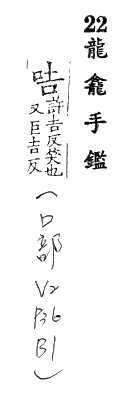 22 龍龕手鑑
咭許吉反笑也
又巨吉反
(口部 V2 P36 B1)